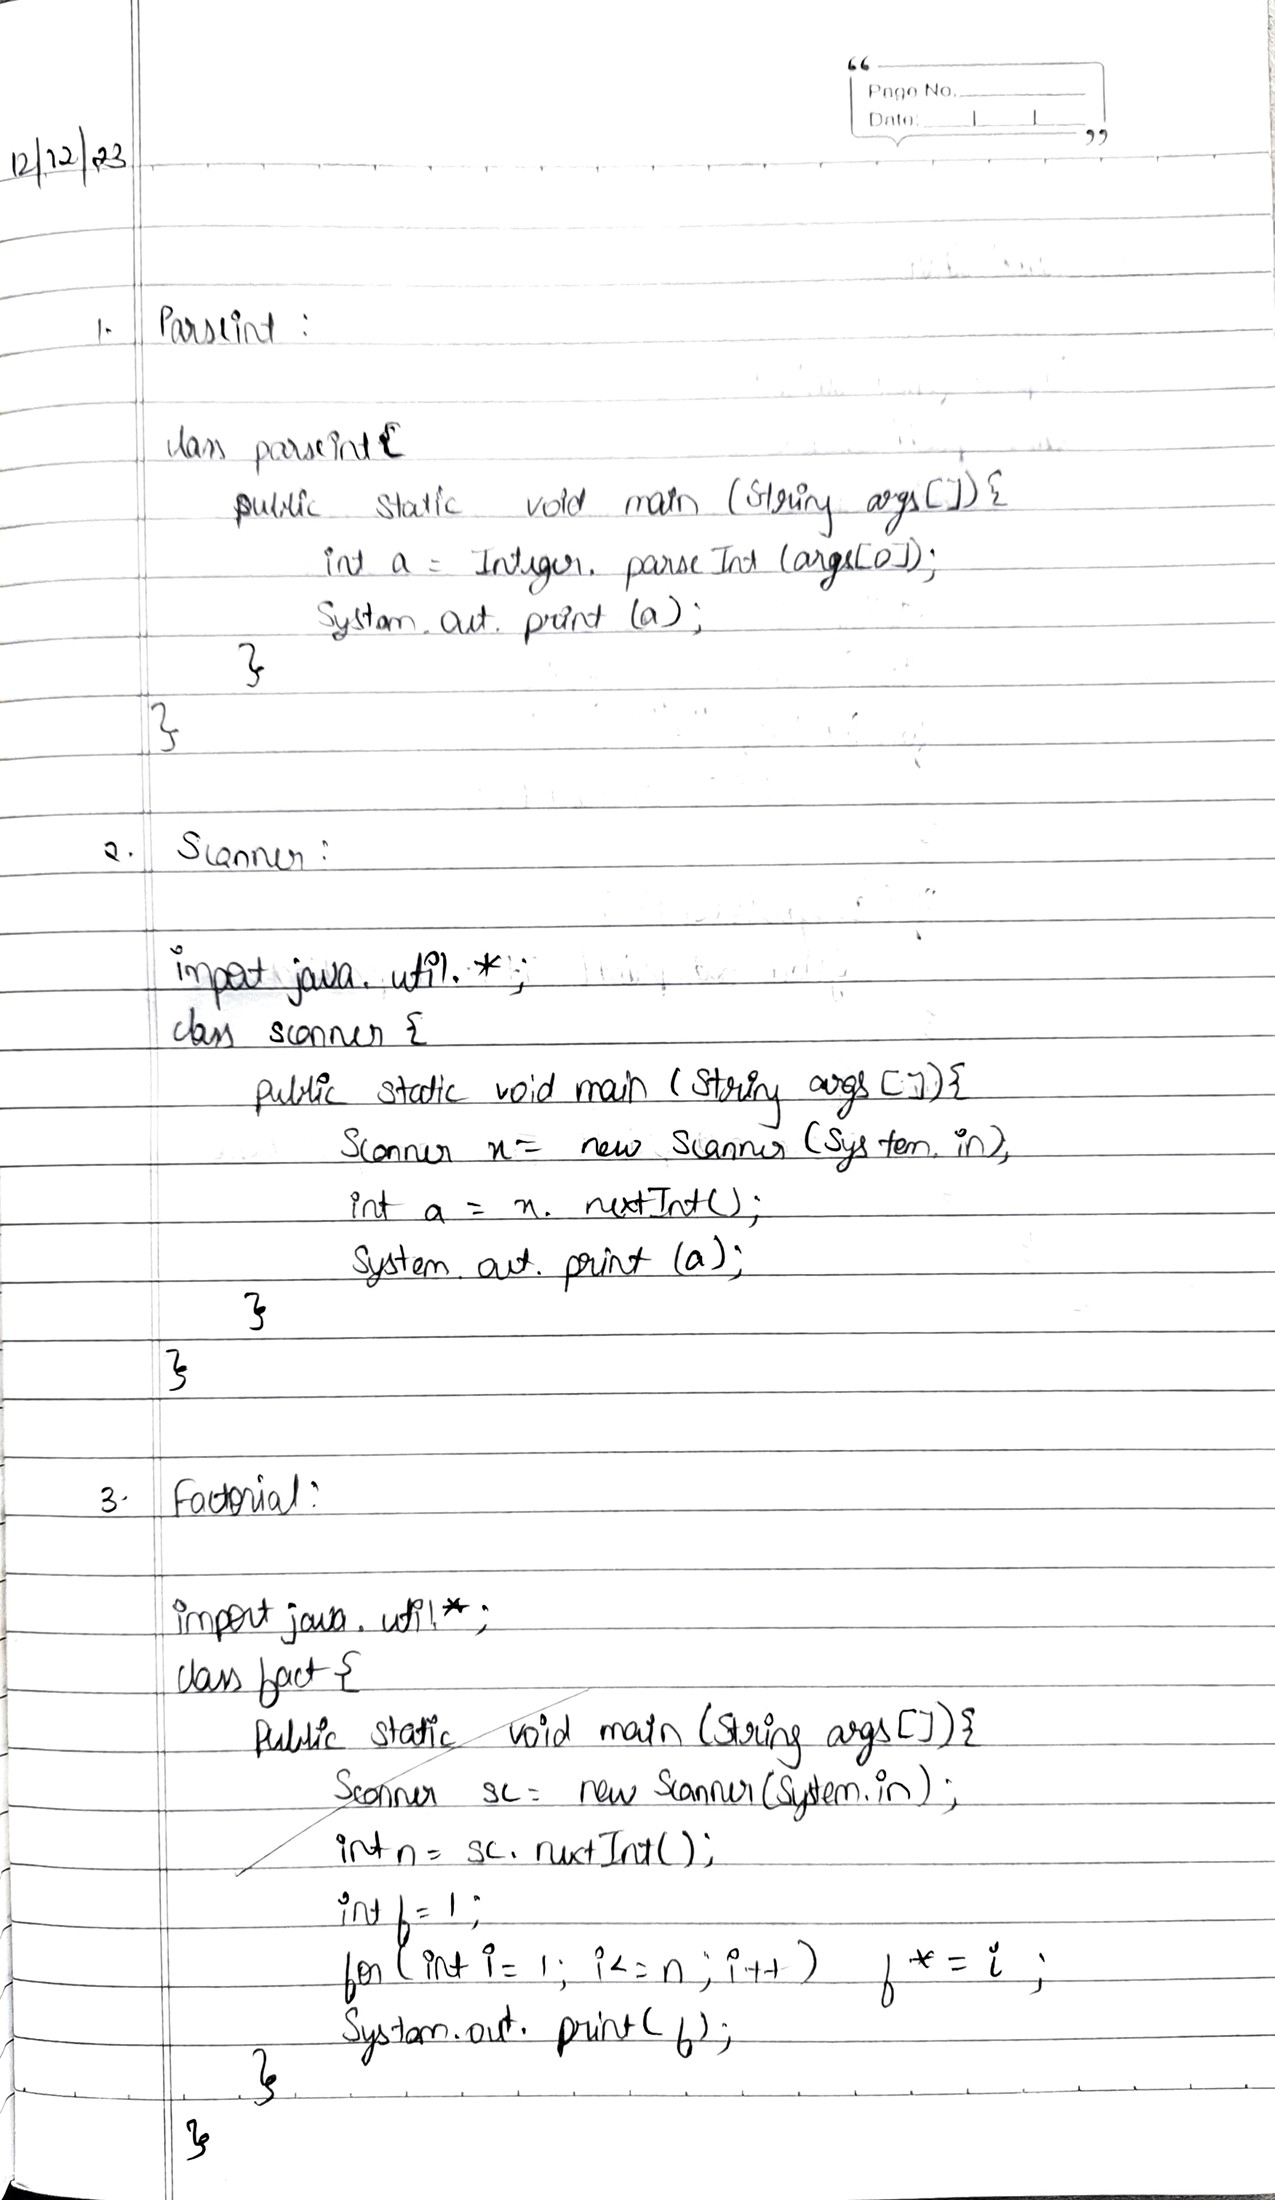 “
Page No.
Date:
”
12/12/23
1. Parseint :
class parseint {
public static void main (String args[]) {
int a = Integer. parse Int (args[0]);
System. out. print (a);
}
}
2. Scanner :
import java. util. *;
class scanner {
public static void main (String args []) {
Scanner x = new Scanner (System. in);
int a = x. nextInt();
System. out. print (a);
}
}
3. Factorial :
import java. util.*;
class fact {
Public static void main (String args []) {
Scanner sc = new Scanner (System.in);
int n = sc. nextInt();
int f = 1;
for (int i = 1; i <= n; i++) f *= i ;
System.out. print( f);
}
}